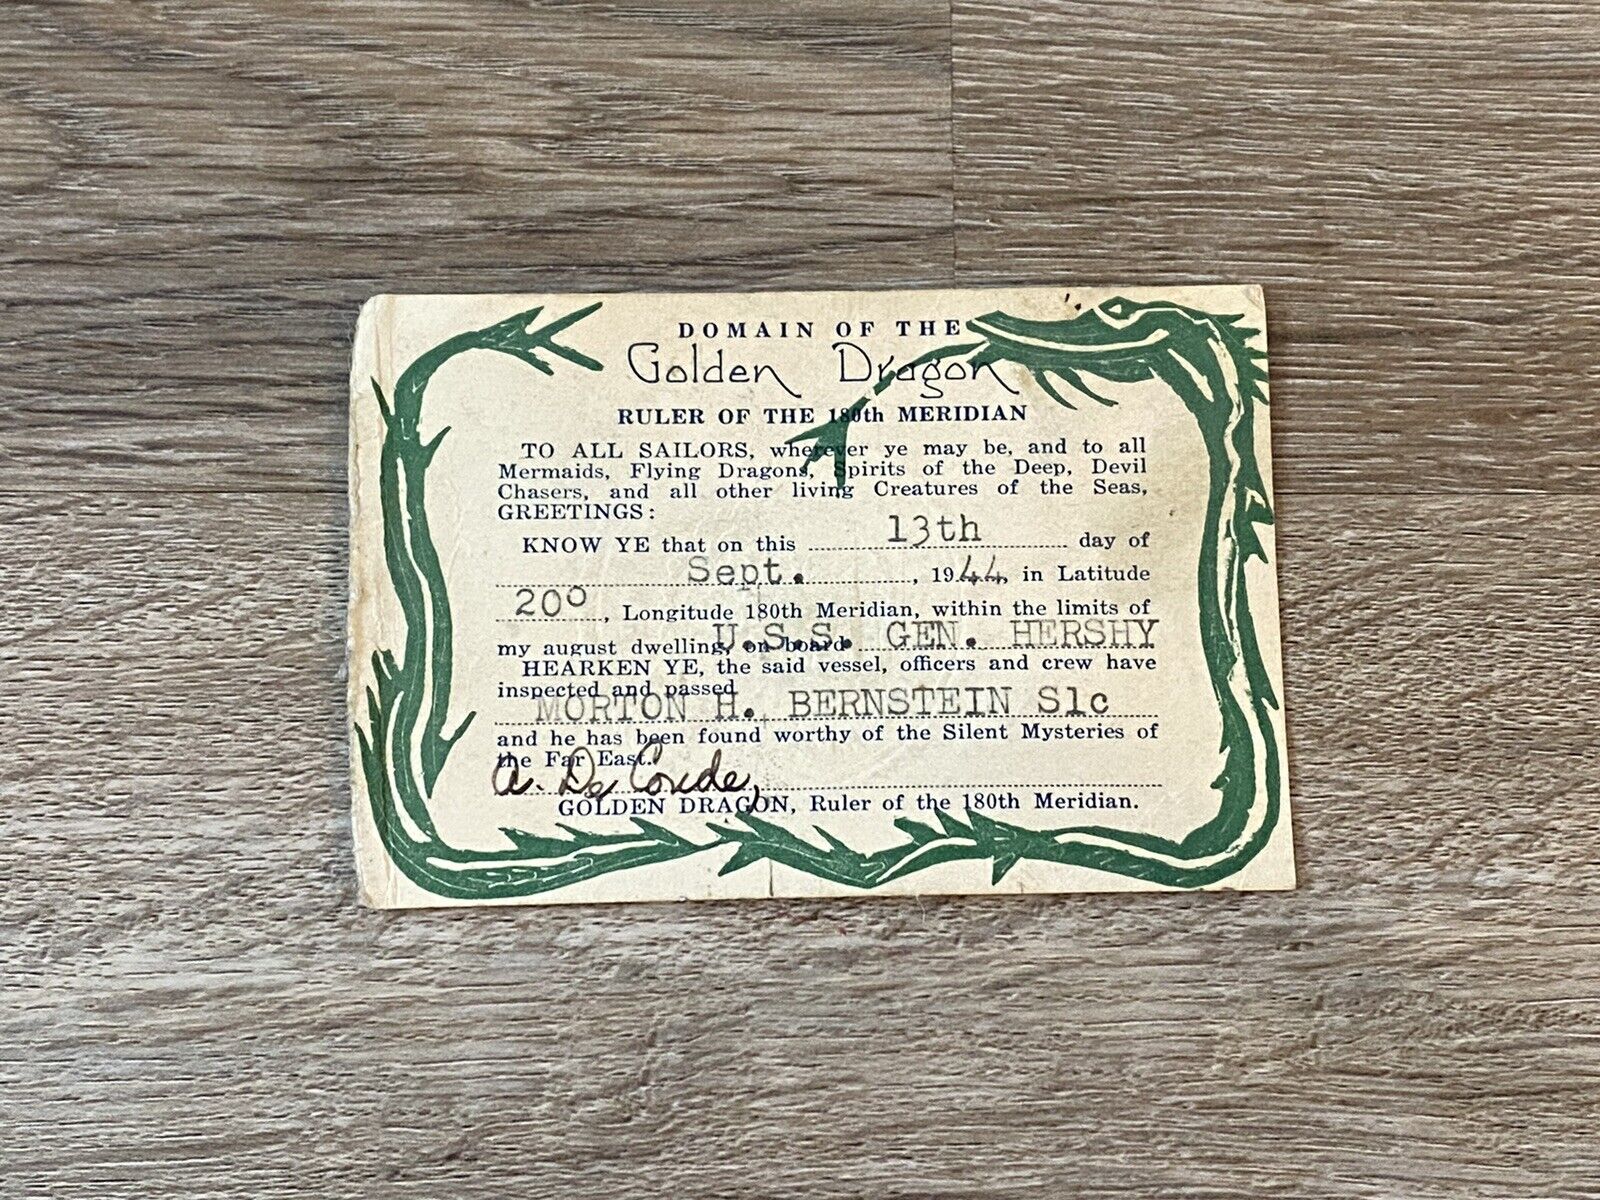 DOMAIN OF THE
Golden Dragon
RULER OF THE 180th MERIDIAN
TO ALL SAILORS, wherever ye may be, and to all
Mermaids, Flying Dragons, Spirits of the Deep, Devil
Chasers, and all other living Creatures of the Seas,
GREETINGS:
KNOW YE that on this 13th day of
Sept., 1944, in Latitude
20°, Longitude 180th Meridian, within the limits of
my august dwelling, on board U.S.S. GEN. HERSHY
HEARKEN YE, the said vessel, officers and crew have
inspected and passed
MORTON H. BERNSTEIN S1c
and he has been found worthy of the Silent Mysteries of
the Far East.
A. De Conde,
GOLDEN DRAGON, Ruler of the 180th Meridian.